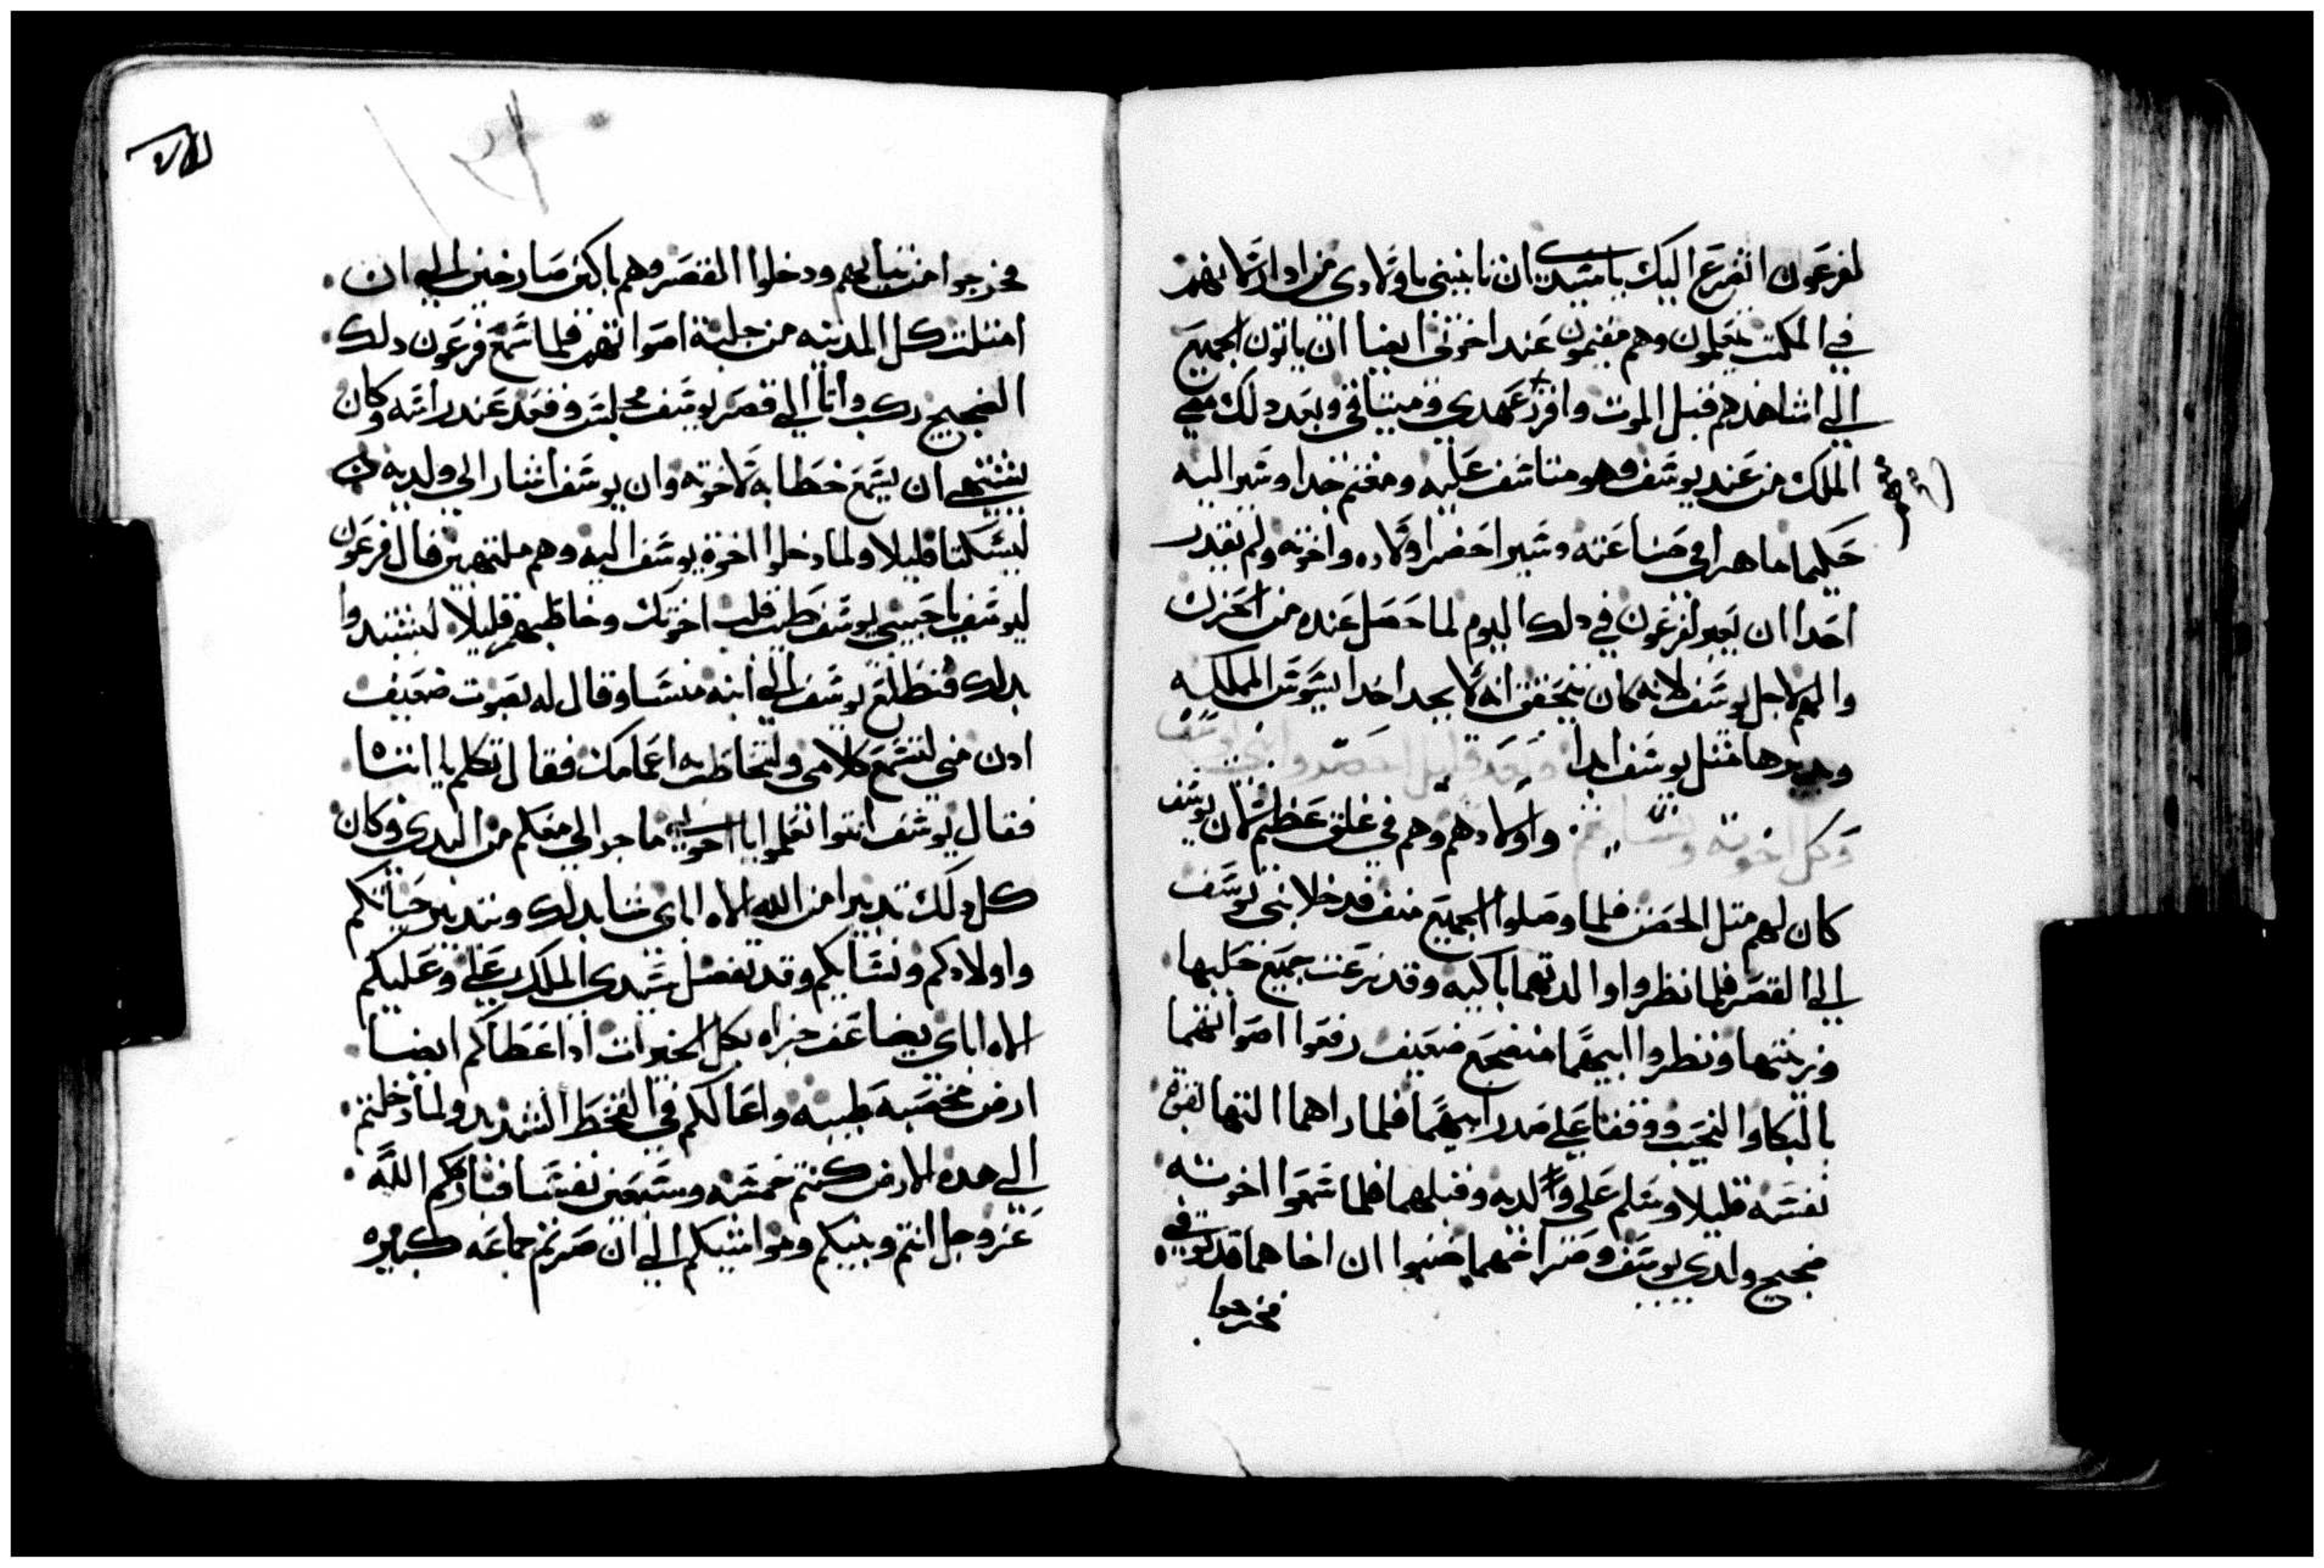 لفرعون اتضرع اليك يا سيدي ان تاتيني باولادي من ادار لانهم
في المكتب يتعلمون وهم مقيمون عند اخوتي ايضا ان ياتون الجميع
الي اشاهدهم قبل الموت وافرز عهدي وميتاقي وبعد دلك مضي
الملك من عند يوسف وهو متاسف عليه ومغتم جدا وسير اليه
حكيما ماهرا في صناعته وسير احضر اولاده واخوته ولم يقدر
احدا ان يعبر لفرعون في دلك اليوم لما حصل عنده من الحزن
والهم لاجل يوسف لانه كان يتحقق انه لا يجد احدا يسوس المملكه
ويدبرها متل يوسف ابدا وبعد قليل حضروا
وكل اخوته واولادهم وهم في غلق عظيم لان يوسف
كان لهم متل الحصن فلما وصلوا الجميع منف فدخلا ابني يوسف
الي القصر فلما نظروا والدتهما باكيه وقد نزعت جميع حليها
وزينتها ونظروا ابيهما منضجع ضعيف رفعوا اصواتهما
بالبكا والنحيب ووقفا علي صدر ابيهما فلما راهما التها لقوة
نفسه قليلا وسلم علي ولديه وقبلهما فلما سمعوا اخوته
ضجيج ولدي يوسف وصراخهما ضنوا ان اخاهما قد توفي
فخرجوا
فخرجوا من تيابهم ودخلوا القصر وهم باكين صارخين الي ان
امتلت كل المدينه من جلبة اصواتهم فلما سمع فرعون دلك
الضجيج ركب واتا الي قصر يوسف فجلس وقعد عند راسه وكان
يشتهي ان يسمع خطابه لاخوته وان يوسف اشار الي ولديه ان
ليسكتا قليلا ولما دخلوا اخوة يوسف اليه وهم ملتهين قال فرعون
ليوسف يا حبيبي يوسف طيب قلب اخوتك وخاطبهم قليلا ليشتدوا
بدلك فتطلع يوسف الي ابنه منسا وقال له بصوت ضعيف
ادن مني لتسمع كلامي ولتخاطب اعمامك فقال تكلم يا ابتاه
فقال يوسف انتوا تعلموا يا اخوتي ما جرا لي معكم من البدي وكان
كل دلك تدبيرا من الله الاه اباي شا بدلك وبتدبير حياتكم
واولادكم ونسايكم وقد تفضل سيدي الملك علي وعليكم
الاه اباي يضاعف جزاه بكل الخيرات ادا اعطاكم ايضا
ارض مخصبه طيبه واعالكم في القحط الشديد ولما دخلتم
الي هده الارض كنتم خمسه وسبعين نفسا فباركم الله
عز وجل انتم وبنيكم ومواشيكم الي ان صرتم جماعه كبيره